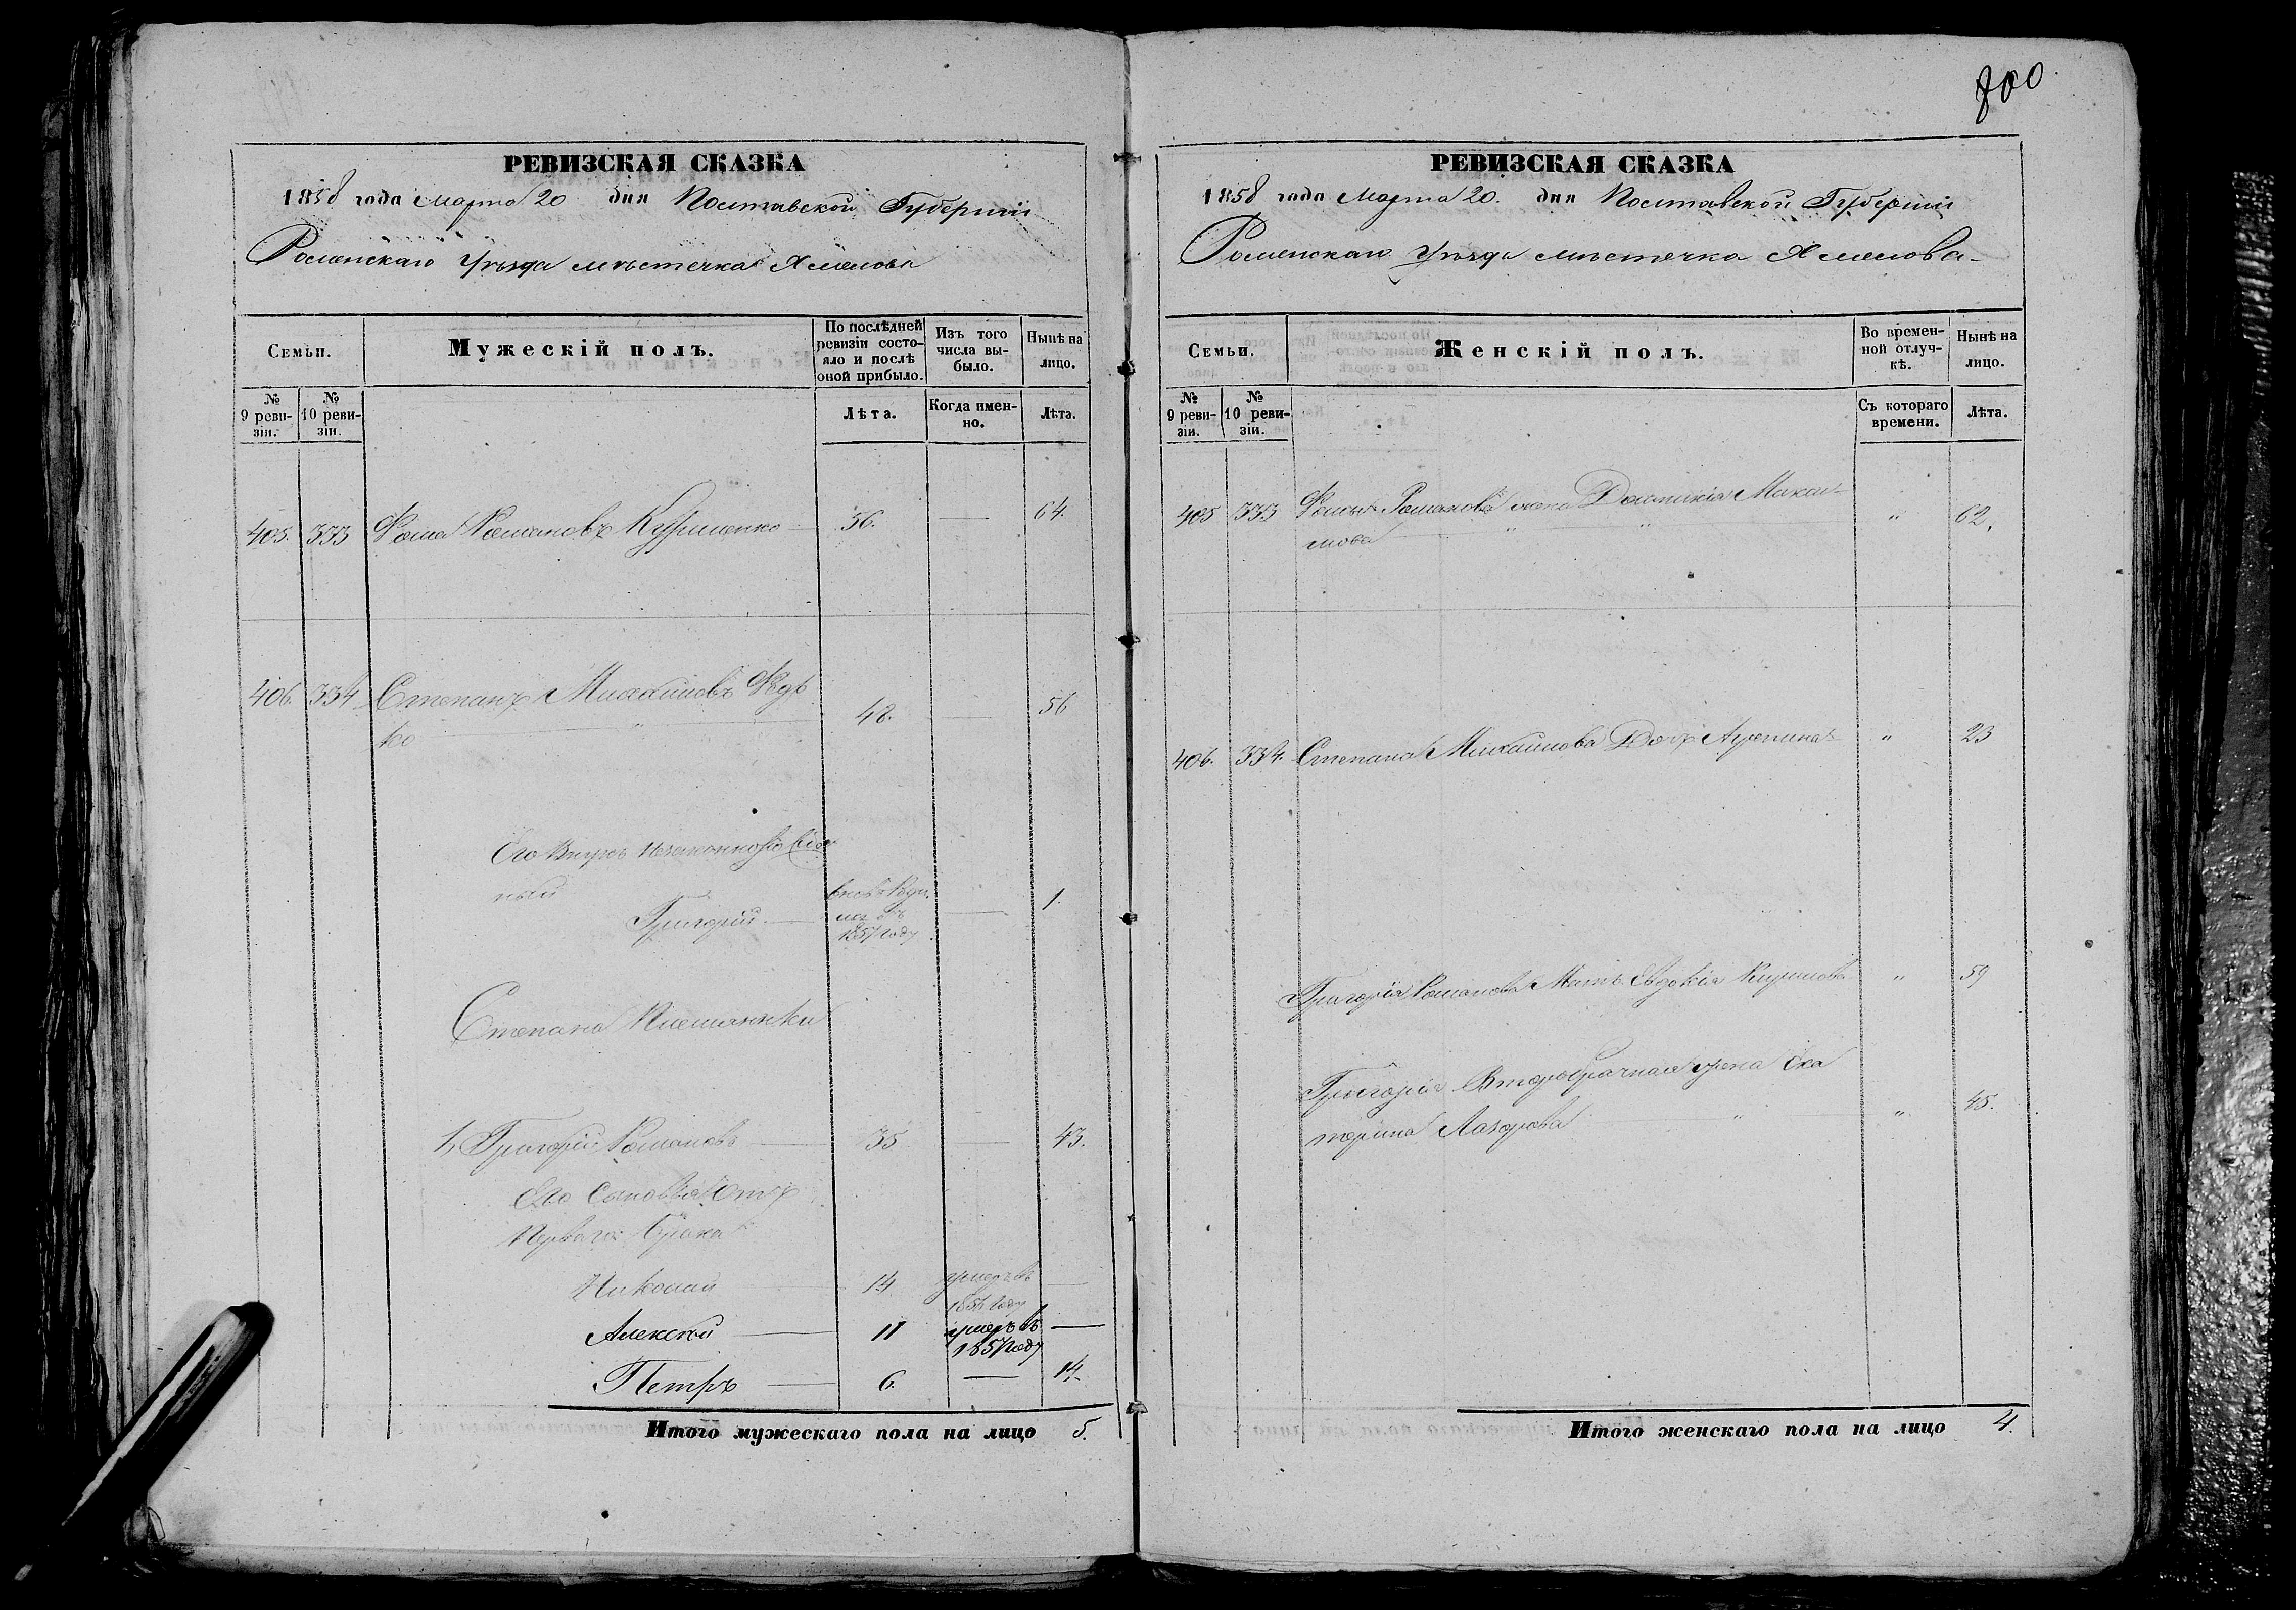 800
РЕВИЗСКАЯ СКАЗКА
1858 года Марта 20 дня Полтавской Губерніи
Роменскаго Уѣзда мѣстечка Хмелова
Семьи.
Мужескій полъ.
По послѣдней ревизіи состояло и послѣ оной прибыло.
Изъ того числа выбыло.
Нынѣ на лицо.
№ 9 ревизіи.
№ 10 ревизіи.
Лѣта.
Когда именно.
Лѣта.
405. 333 Фома Романовъ 56. — 64.
406. 334 Степанъ Михайловъ Редь
ко 48. — 56
Его Внукъ незаконнорожден
ный
Григорій — вновь Роди. лся въ 1857 году — 1.
Степана Племянники
1, Григорій Романовъ — 35 — 43.
Его Сыновья Отъ
Перваго Брака
Николай — 14 умеръ въ 185 году —
Алексѣй — 11 умеръ въ 1857 году —
Петръ — 6. — 14
Итого мужескаго пола на лицо 5.
РЕВИЗСКАЯ СКАЗКА
1858 года Марта 20. дня Полтавской Губерніи
Роменскаго Уѣзда мѣстечка Хмелова
Семьи.
Женскій полъ.
Во временной отлучкѣ.
Нынѣ на лицо.
№ 9 ревизіи.
№ 10 ревизіи.
Съ котораго времени.
Лѣта.
405 333 Фомы Романова жена Домникія Макси-
мова " " " 62.
406. 334. Степана Михайлова Дочь Агрепина " 23
Григорія Романова Мать Евдокія " 59
Григорія Второбрачная жена Ека
терина Лазарева " " 45.
Итого женскаго пола на лицо 4.